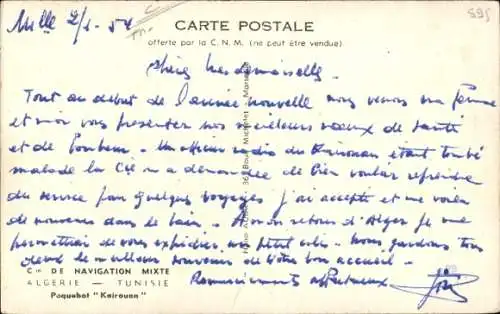 Mlle 2/1-54
CARTE POSTALE
offerte par la C. N. M. (ne peut être vendue)
595
Chères Mesdemoiselles.
Tout au début de l'année nouvelle nous venons ma femme
et moi vous présenter nos meilleurs vœux de santé
et de bonheur. Un officier radio du Kairouan étant tombé
malade la Cie m'a demandé de bien vouloir reprendre
du service pour quelques voyages j'ai accepté et me voilà
de nouveau dans le bain. A mon retour d'Alger je me
permettrai de vous expédier un petit colis. Nous gardons tous
deux le meilleur souvenir de votre bon accueil.
Cie DE NAVIGATION MIXTE
ALGERIE — TUNISIE
Paquebot "Kairouan"
Remerciements affectueux